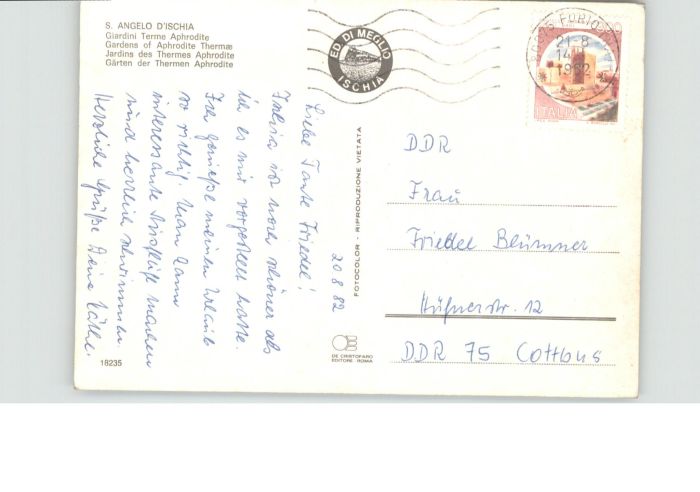 S. ANGELO D'ISCHIA
Giardini Terme Aphrodite
Gardens of Aphrodite Thermæ
Jardins des Thermes Aphrodite
Gärten der Thermen Aphrodite
ED. DI MEGLIO
ISCHIA
FORIO
21-8
1982
ITALIA
20.8.82
Liebe Tante Friedel!
Ischia ist noch schöner als
ich es mir vorgestellt hatte.
Ich genieße meinen Urlaub
so richtig. Man kann
interessante Ausflüge machen
und herrlich schwimmen.
Herzliche Grüße Deine Käthe.
FOTOCOLOR - RIPRODUZIONE VIETATA
DE CRISTOFARO
EDITORE - ROMA
18235
DDR
Frau
Friedel Blümner
Hüfnerstr. 12
DDR 75 Cottbus